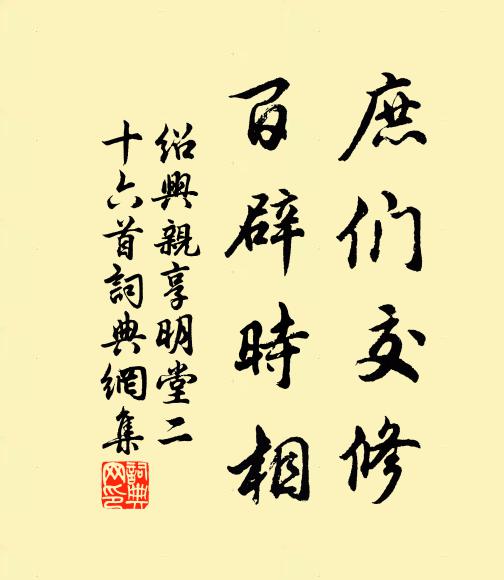 庶们交修
百辟時相
绍興親享明堂二
十六首詞典網集
詞典网印